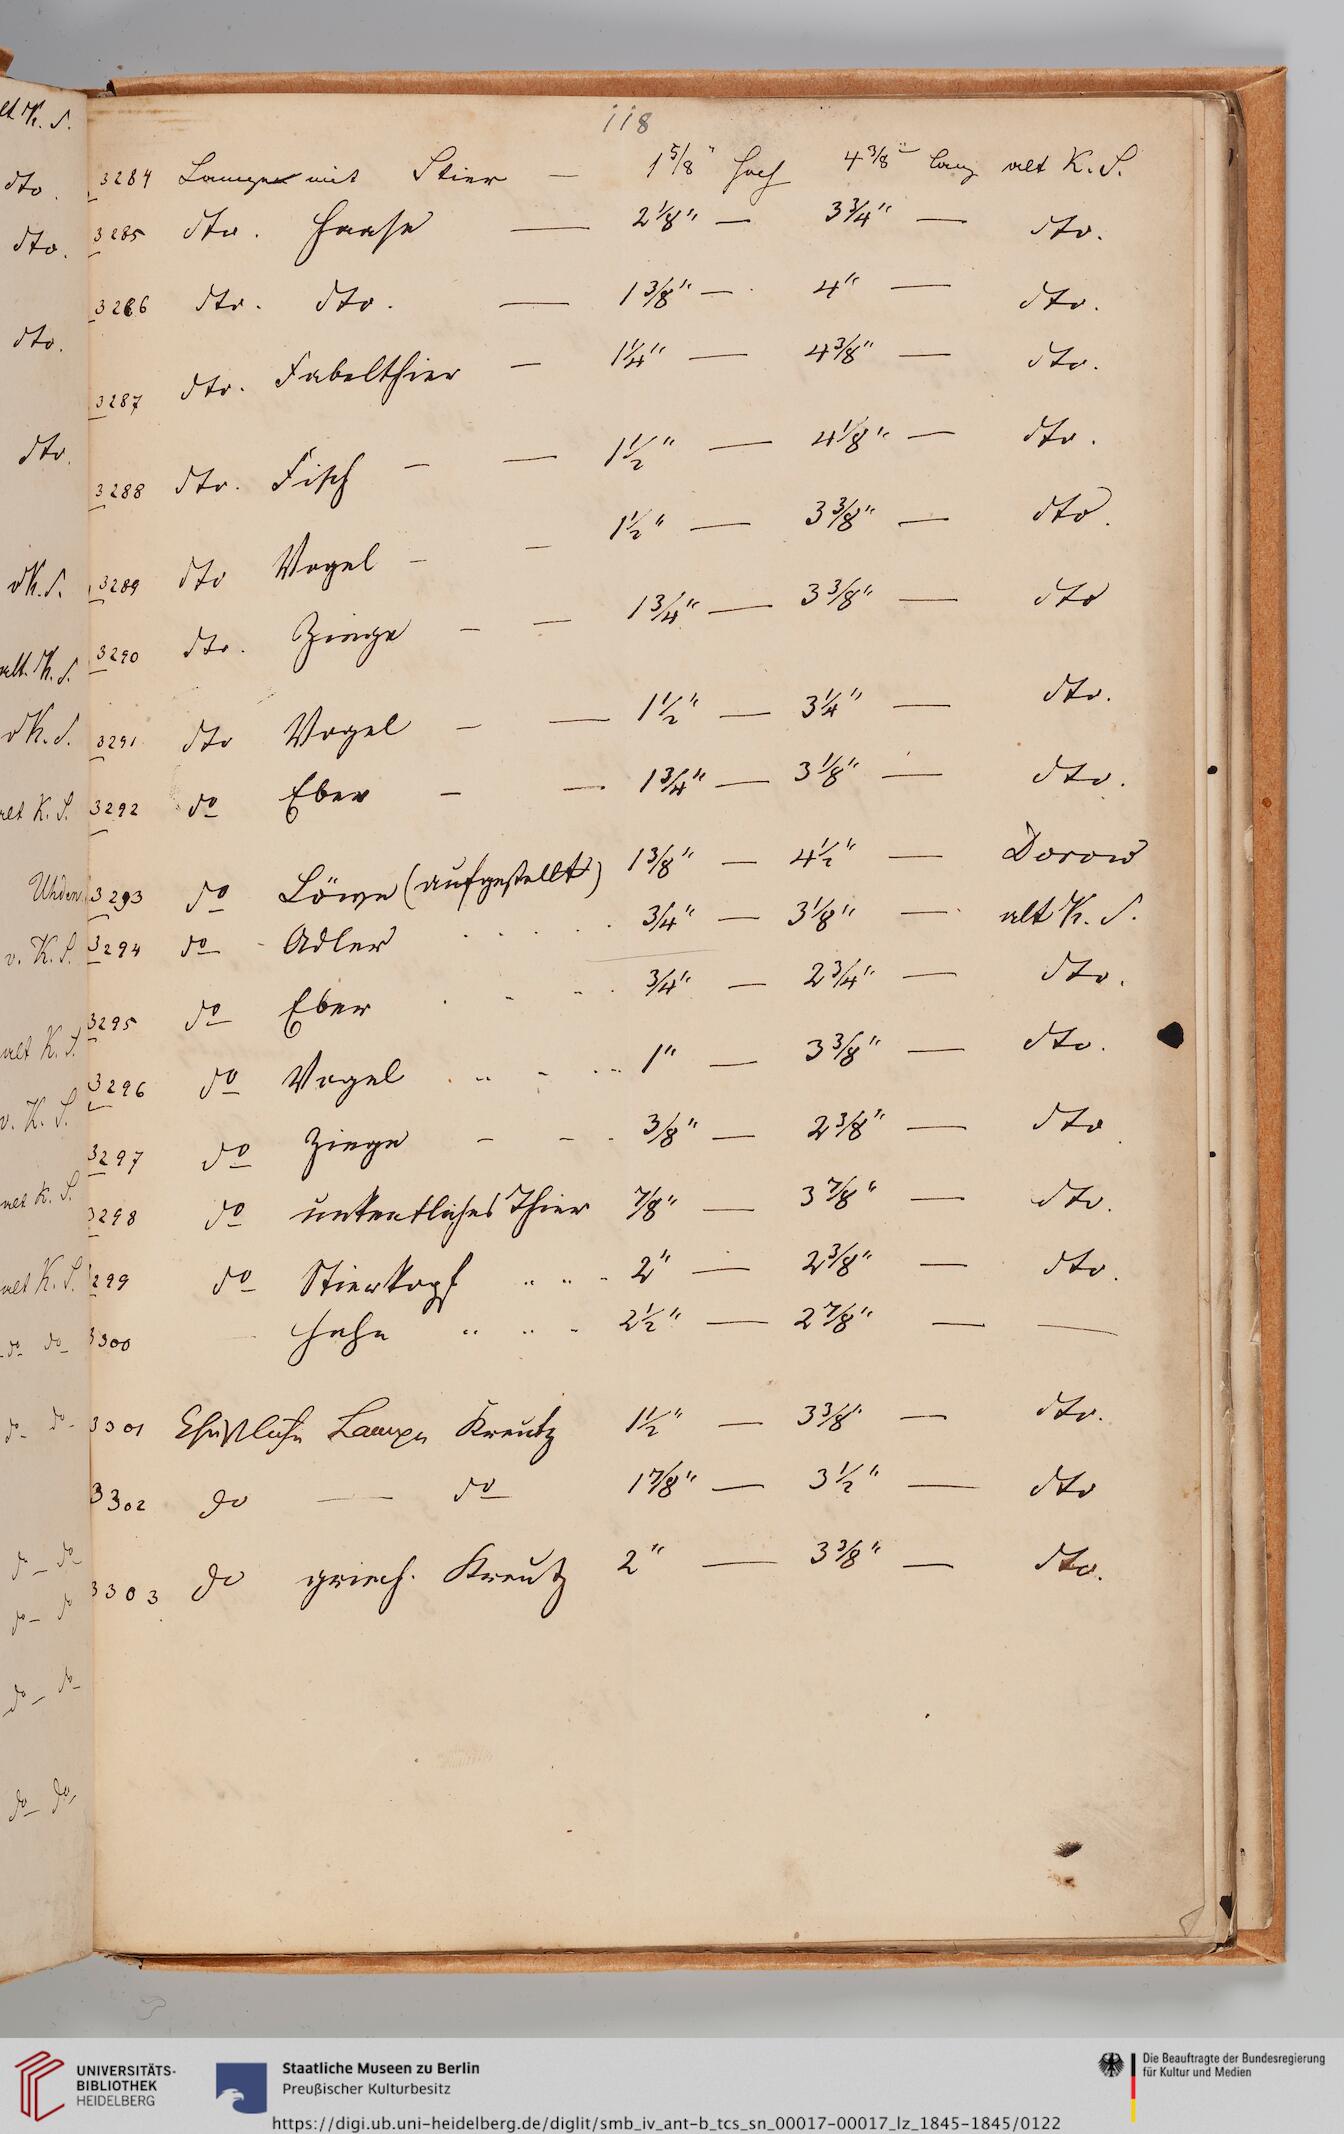 118
3284 Lampe mit Stier — 1 5/8" hoch 4 3/8" lang alt K. S.
3285 dto. Haase — 2 1/8" — 3 3/4" — dto.
3286 dto. dto. — 1 3/8" — 4" — dto.
3287 dto. Fabelthier — 1 1/4" — 4 3/8" — dto.
3288 dto. Fisch — — 1 1/2" — 4 1/8" — dto.
3289 dto Vogel — — 1 1/2" — 3 3/8" — dto.
3290 dto. Ziege — — 1 3/4" — 3 3/8" — dto
3291 dto Vogel — — 1 1/2" — 3 1/4" — dto.
3292 do Eber — — 1 3/4" — 3 1/8" — dto.
3293 do Löwe (aufgestellt) 1 3/8" — 4 1/2" — Dorow
3294 do Adler 3/4" — 3 1/8" — alt K. S.
3295 do Eber 3/4" — 2 3/4" — dto.
3296 do Vogel 1" — 3 3/8" — dto.
3297 do Ziege 3/8" — 2 3/8" — dto
3298 do unkentliches Thier 7/8" — 3 7/8" — dto.
3299 do Stierkopf 2" — 2 3/8" — dto.
3300 Hahn 2 1/2" — 2 7/8" — —
3301 Christliche Lampe Kreutz 1 1/2" — 3 3/8" — dto.
3302 do — do 1 7/8" — 3 1/2" — dto
3303 do griech. Kreutz 2" — 3 3/8" — dto.
alt K. S.
dto.
dto.
dto.
dto.
v K. S.
alt. K. S.
v K. S.
alt K. S.
Uhden
v. K. S.
alt K. S.
v. K. S.
alt K. S.
alt K. S.
do do
do do
do — do
do — do
do — do
do — do
UNIVERSITÄTS-
BIBLIOTHEK
HEIDELBERG
Staatliche Museen zu Berlin
Preußischer Kulturbesitz
Die Beauftragte der Bundesregierung
für Kultur und Medien
https://digi.ub.uni-heidelberg.de/diglit/smb_iv_ant-b_tcs_sn_00017-00017_lz_1845-1845/0122